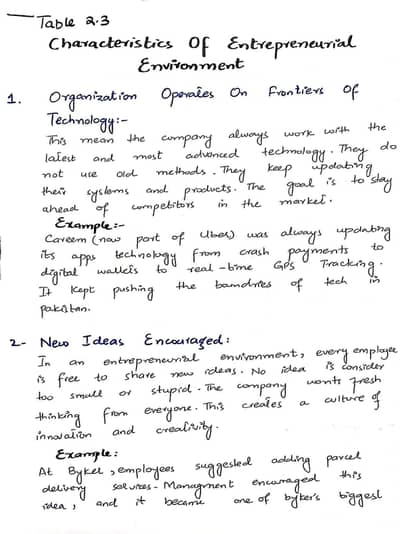 Table 2.3
Characteristics Of Entrepreneurial
Environment
1. Organization Operates On Frontiers Of
Technology:-
This mean the company always work with the
latest and most advanced technology. They do
not use old methods. They keep updating
their systems and products. The goal is to stay
ahead of competitors in the market.
Example:-
Careem (now part of Uber) was always updating
its apps technology from crash payments to
digital wallets to real-time GPS Tracking.
It kept pushing the bamdries of tech in
Pakistan.
2- New Ideas Encouraged:
In an entrepreneurial environment, every employee
is free to share new ideas. No idea is consider
too small or stupid. The company wants fresh
thinking from everyone. This creates a culture of
innovation and creativity.
Example:
At Bykea, employees suggested adding parcel
delivery services. Managment encouraged this
idea, and it became one of byker's biggest